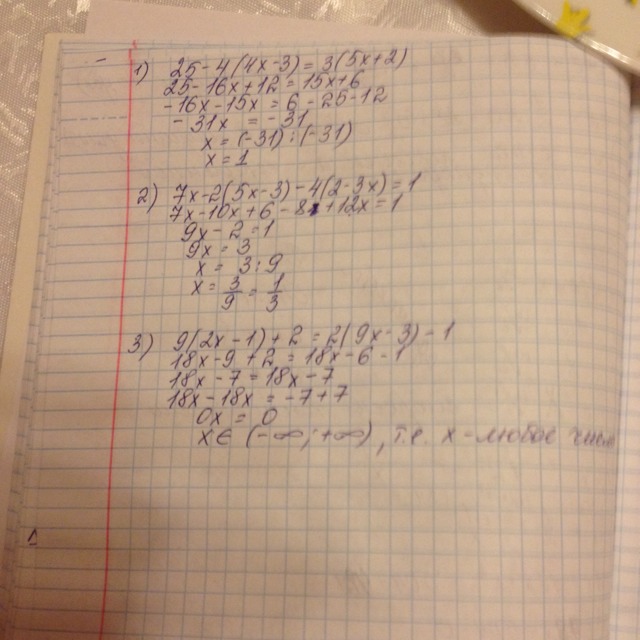 1) 25-4(4x-3)=3(5x+2)
25-16x+12=15x+6
-16x-15x=6-25-12
-31x=-31
x=(-31):(-31)
x=1
2) 7x-2(5x-3)-4(2-3x)=1
7x-10x+6-8+12x=1
9x-2=1
9x=3
x=3:9
x=3/9=1/3
3) 9(2x-1)+2=2(9x-3)-1
18x-9+2=18x-6-1
18x-7=18x-7
18x-18x=-7+7
0x=0
x∈(-∞;+∞), т.е. x-любое число